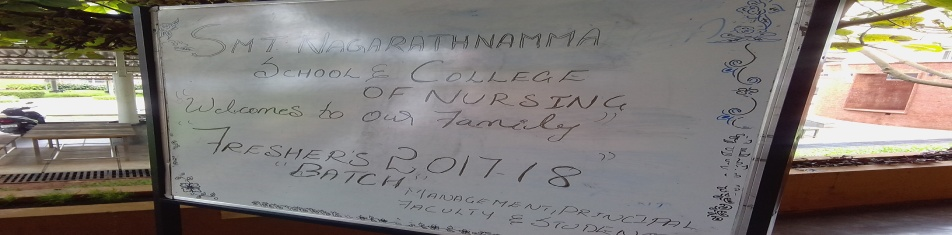 SMT NAGARATHNAMMA
SCHOOL & COLLEGE
OF NURSING
"Welcomes to our Family"
"FRESHER'S 2017-18"
BATCH"
MANAGEMENT, PRINCIPAL
FACULTY & STUDEN